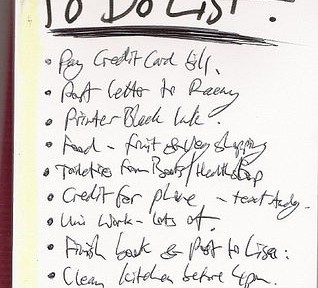 To Do List:
• Pay Credit Card Bill.
• Post letter to
• Printer Black Ink.
• Food - fruit & veg shopping
• Toiletries from Boots/Health Shop
• Credit for phone - text
• Uni Work - lots of.
• Finish book & Post to Lisa:
• Clean kitchen before 4pm.